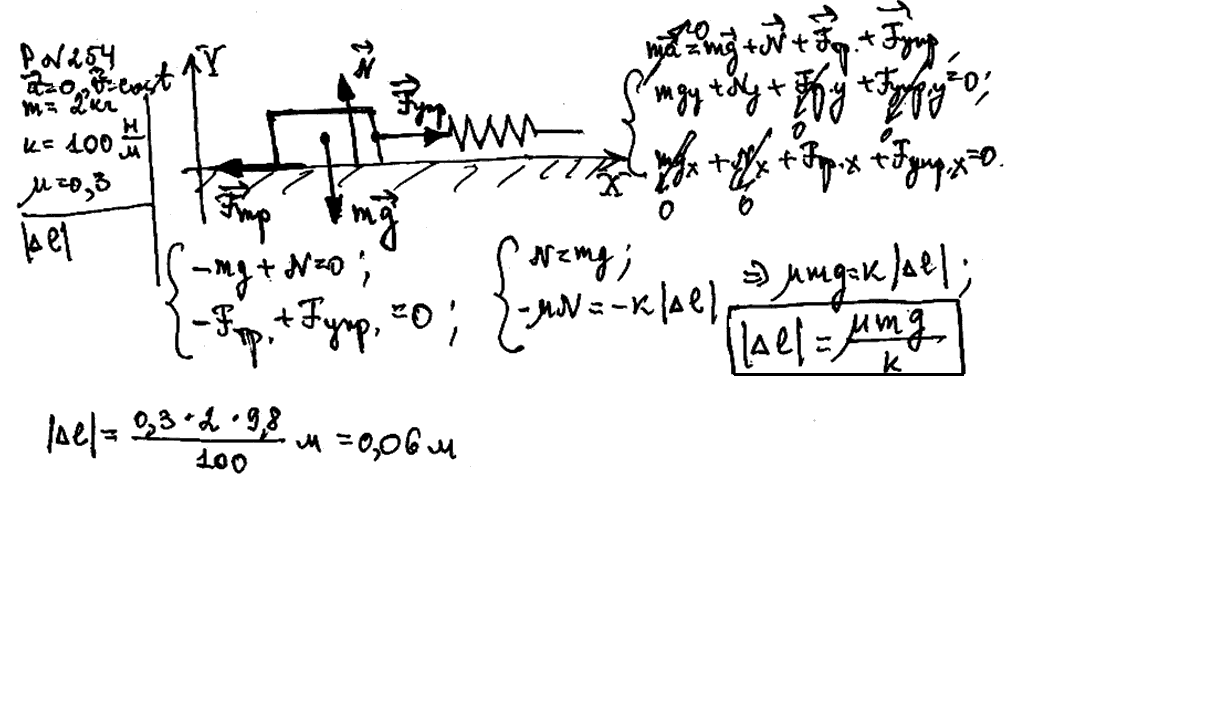 Р №254
a⃗=0, v⃗=const
m = 2кг
k = 100 Н/м
μ=0,3
|Δl|
Y
N⃗
F⃗упр
F⃗тр
mg⃗
X
ma⃗ = mg⃗ + N⃗ + F⃗тр. + F⃗упр.;
0
mgy + Ny + Fтр.y + Fупр.y = 0;
0 0
mgx + Nx + Fтр.x + Fупр.x = 0.
0 0
-mg + N=0;
-Fтр. + Fупр. = 0;
N=mg;
-μN = -k|Δl|
=> μmg=k|Δl|;
|Δl| = μmg/k
|Δl| = 0,3 · 2 · 9,8/100 м = 0,06 м